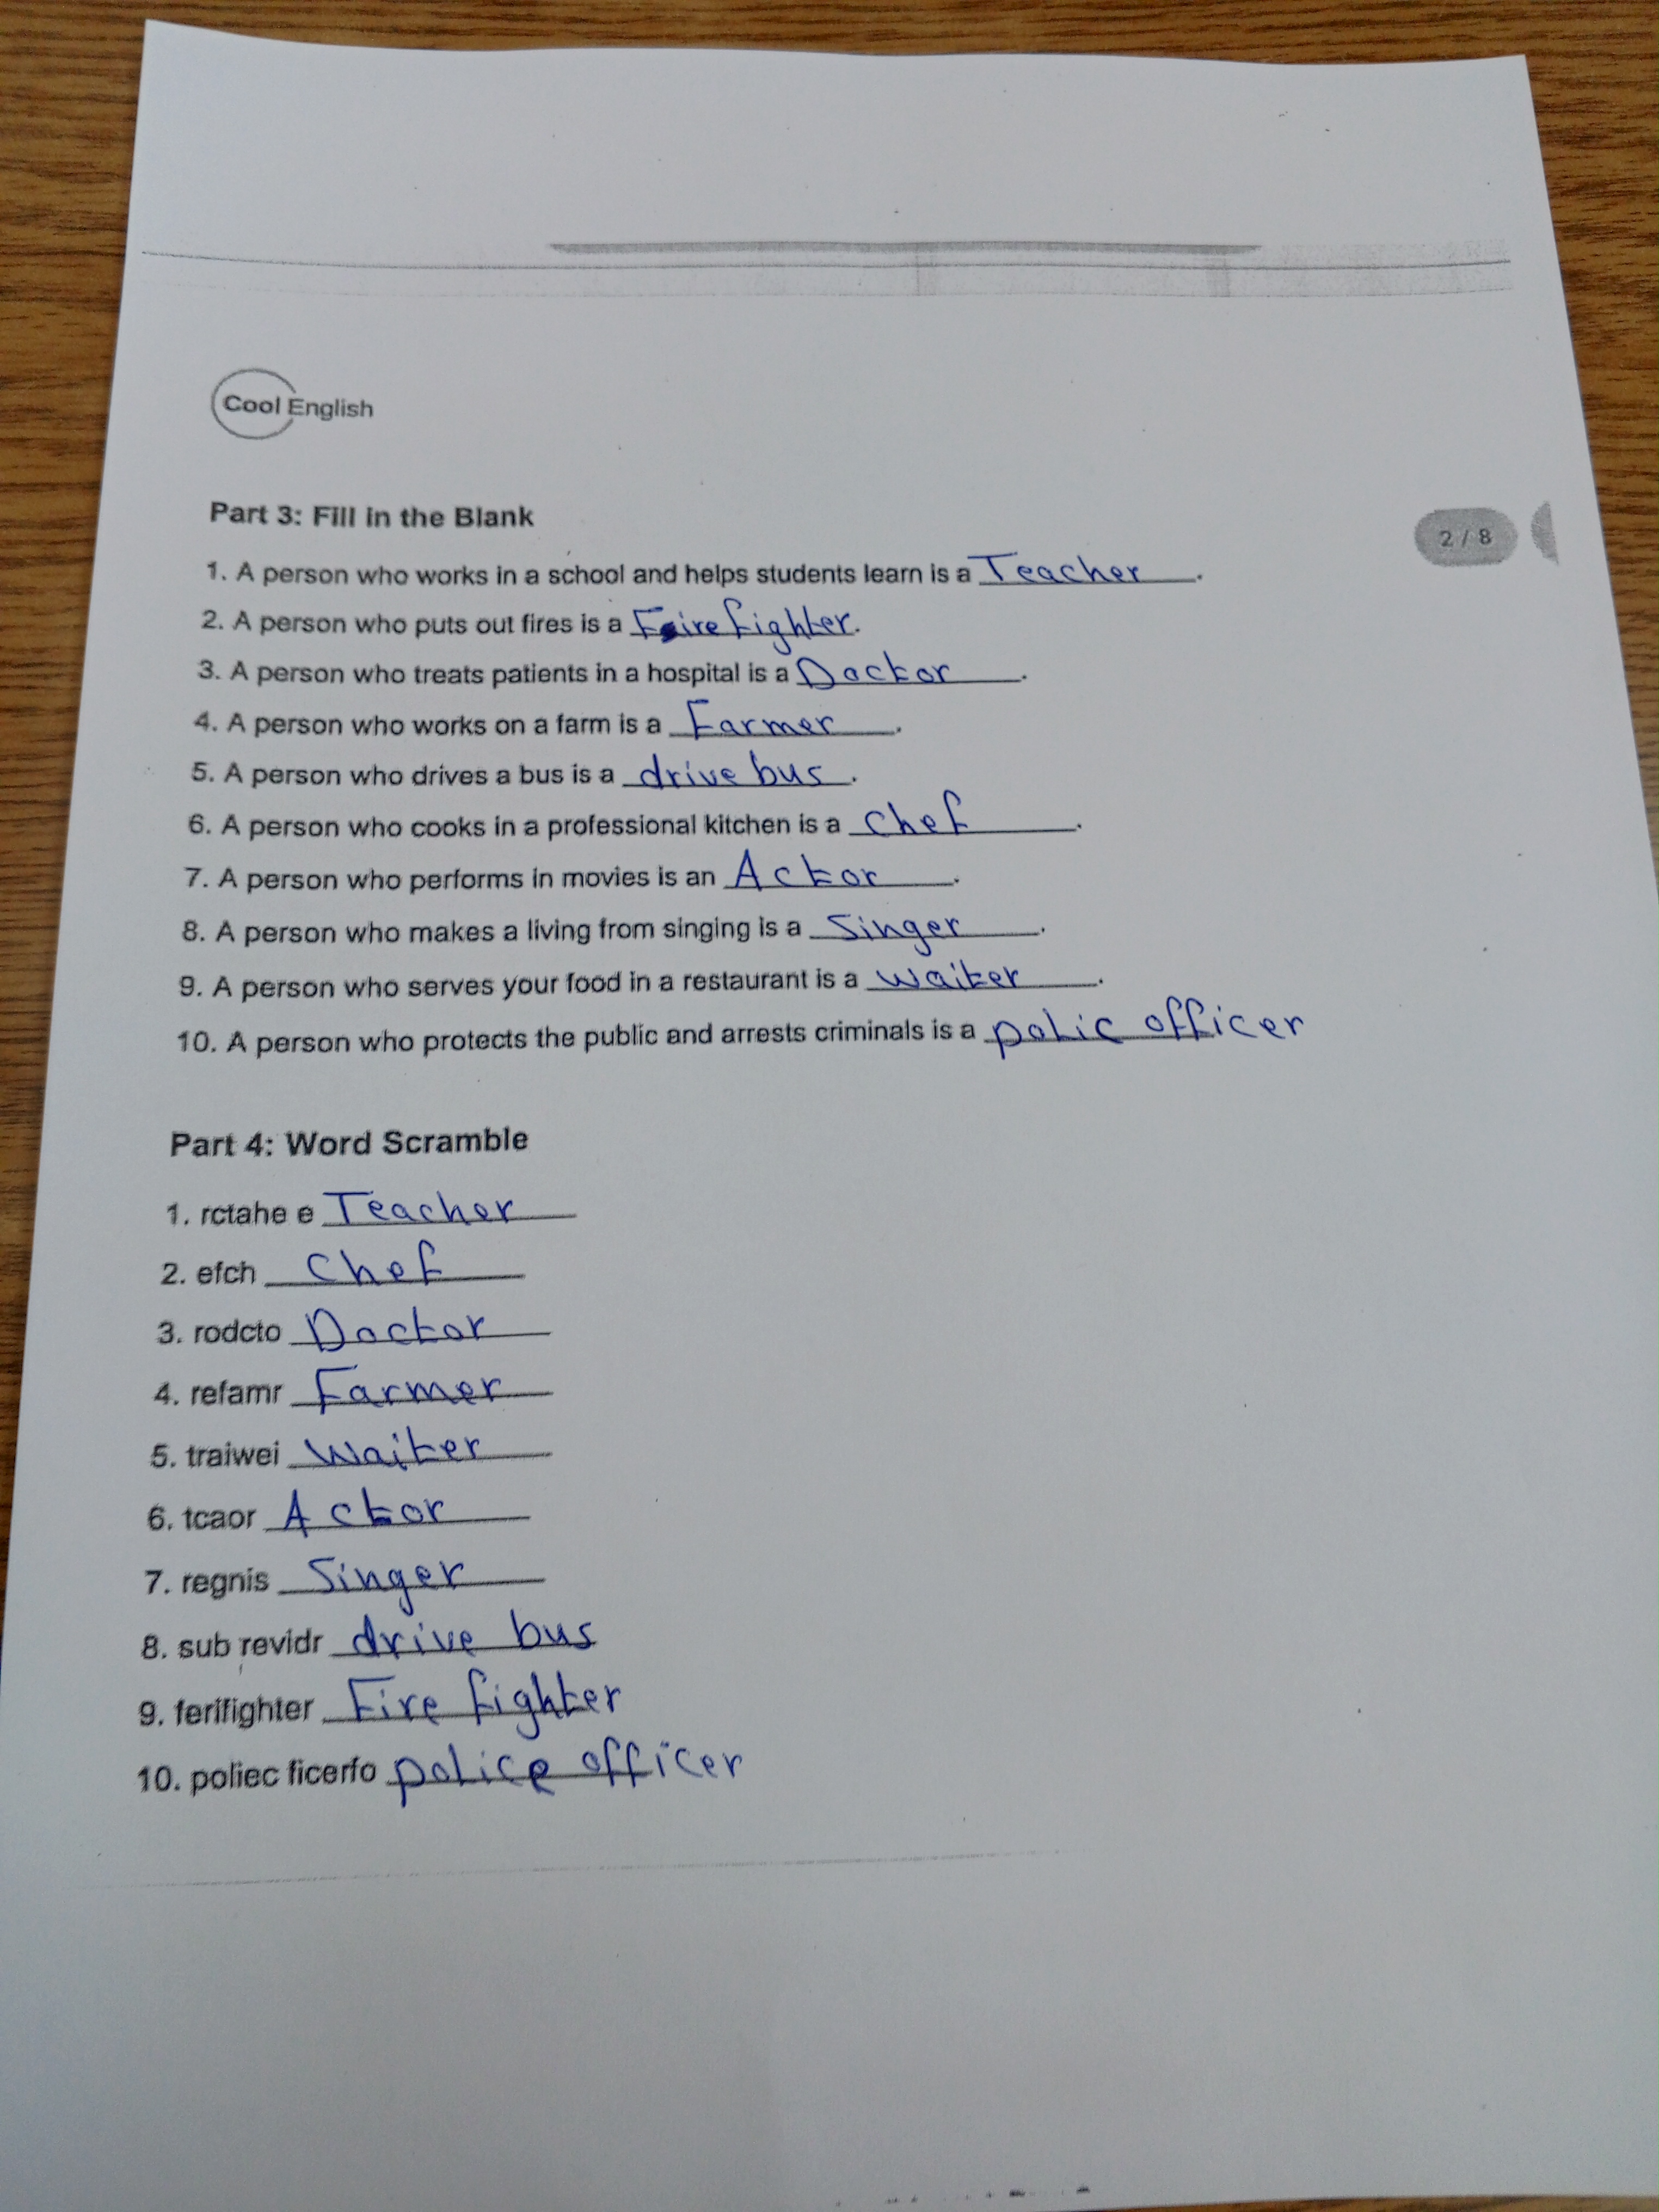 Cool English
Part 3: Fill in the Blank
2 / 8
1. A person who works in a school and helps students learn is a Teacher.
2. A person who puts out fires is a Fire fighter.
3. A person who treats patients in a hospital is a Doctor.
4. A person who works on a farm is a Farmer.
5. A person who drives a bus is a drive bus.
6. A person who cooks in a professional kitchen is a chef.
7. A person who performs in movies is an Actor.
8. A person who makes a living from singing is a Singer.
9. A person who serves your food in a restaurant is a waiter.
10. A person who protects the public and arrests criminals is a polic officer
Part 4: Word Scramble
1. rctahe e Teacher
2. efch Chef
3. rodcto Doctor
4. refamr Farmer
5. traiwei Waiter
6. tcaor Actor
7. regnis Singer
8. sub revidr drive bus
9. ferifighter Fire fighter
10. poliec ficerfo police officer